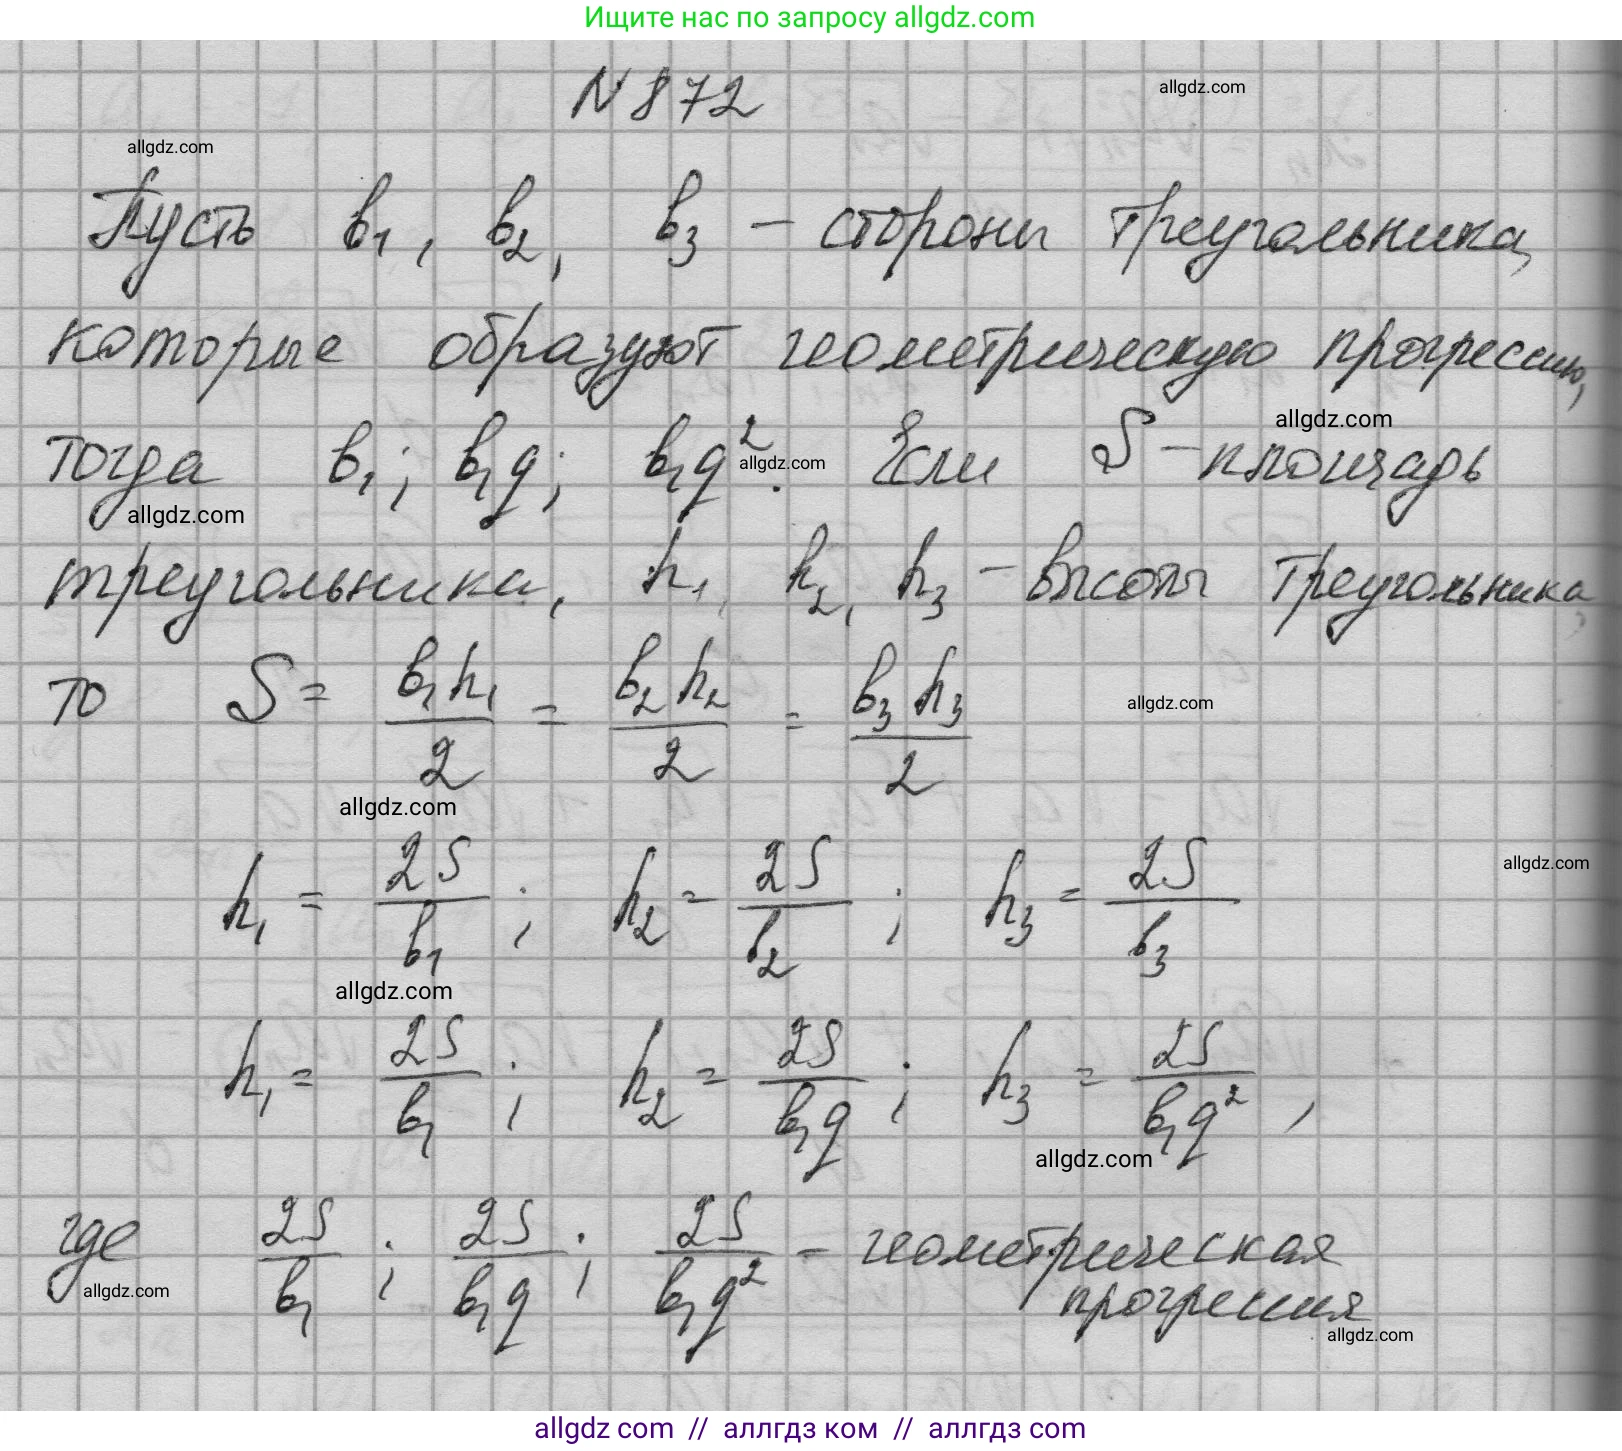 Ищите нас по запросу allgdz.com
N 872
allgdz.com
allgdz.com
Пусть b₁, b₂, b₃ – стороны треугольника,
которые образуют геометрическую прогрессию,
allgdz.com
тогда b₁; b₁q; b₁q². Если S – площадь
allgdz.com
allgdz.com
треугольника, h₁, h₂, h₃ – высоты треугольника,
то S = b₁h₁/2 = b₂h₂/2 = b₃h₃/2
allgdz.com
allgdz.com
h₁ = 2S/b₁; h₂ = 2S/b₂; h₃ = 2S/b₃
allgdz.com
allgdz.com
h₁ = 2S/b₁; h₂ = 2S/b₁q; h₃ = 2S/b₁q²,
allgdz.com
где 2S/b₁; 2S/b₁q; 2S/b₁q² – геометрическая
прогрессия
allgdz.com
allgdz.com
allgdz.com // аллгдз ком // аллгдз.com